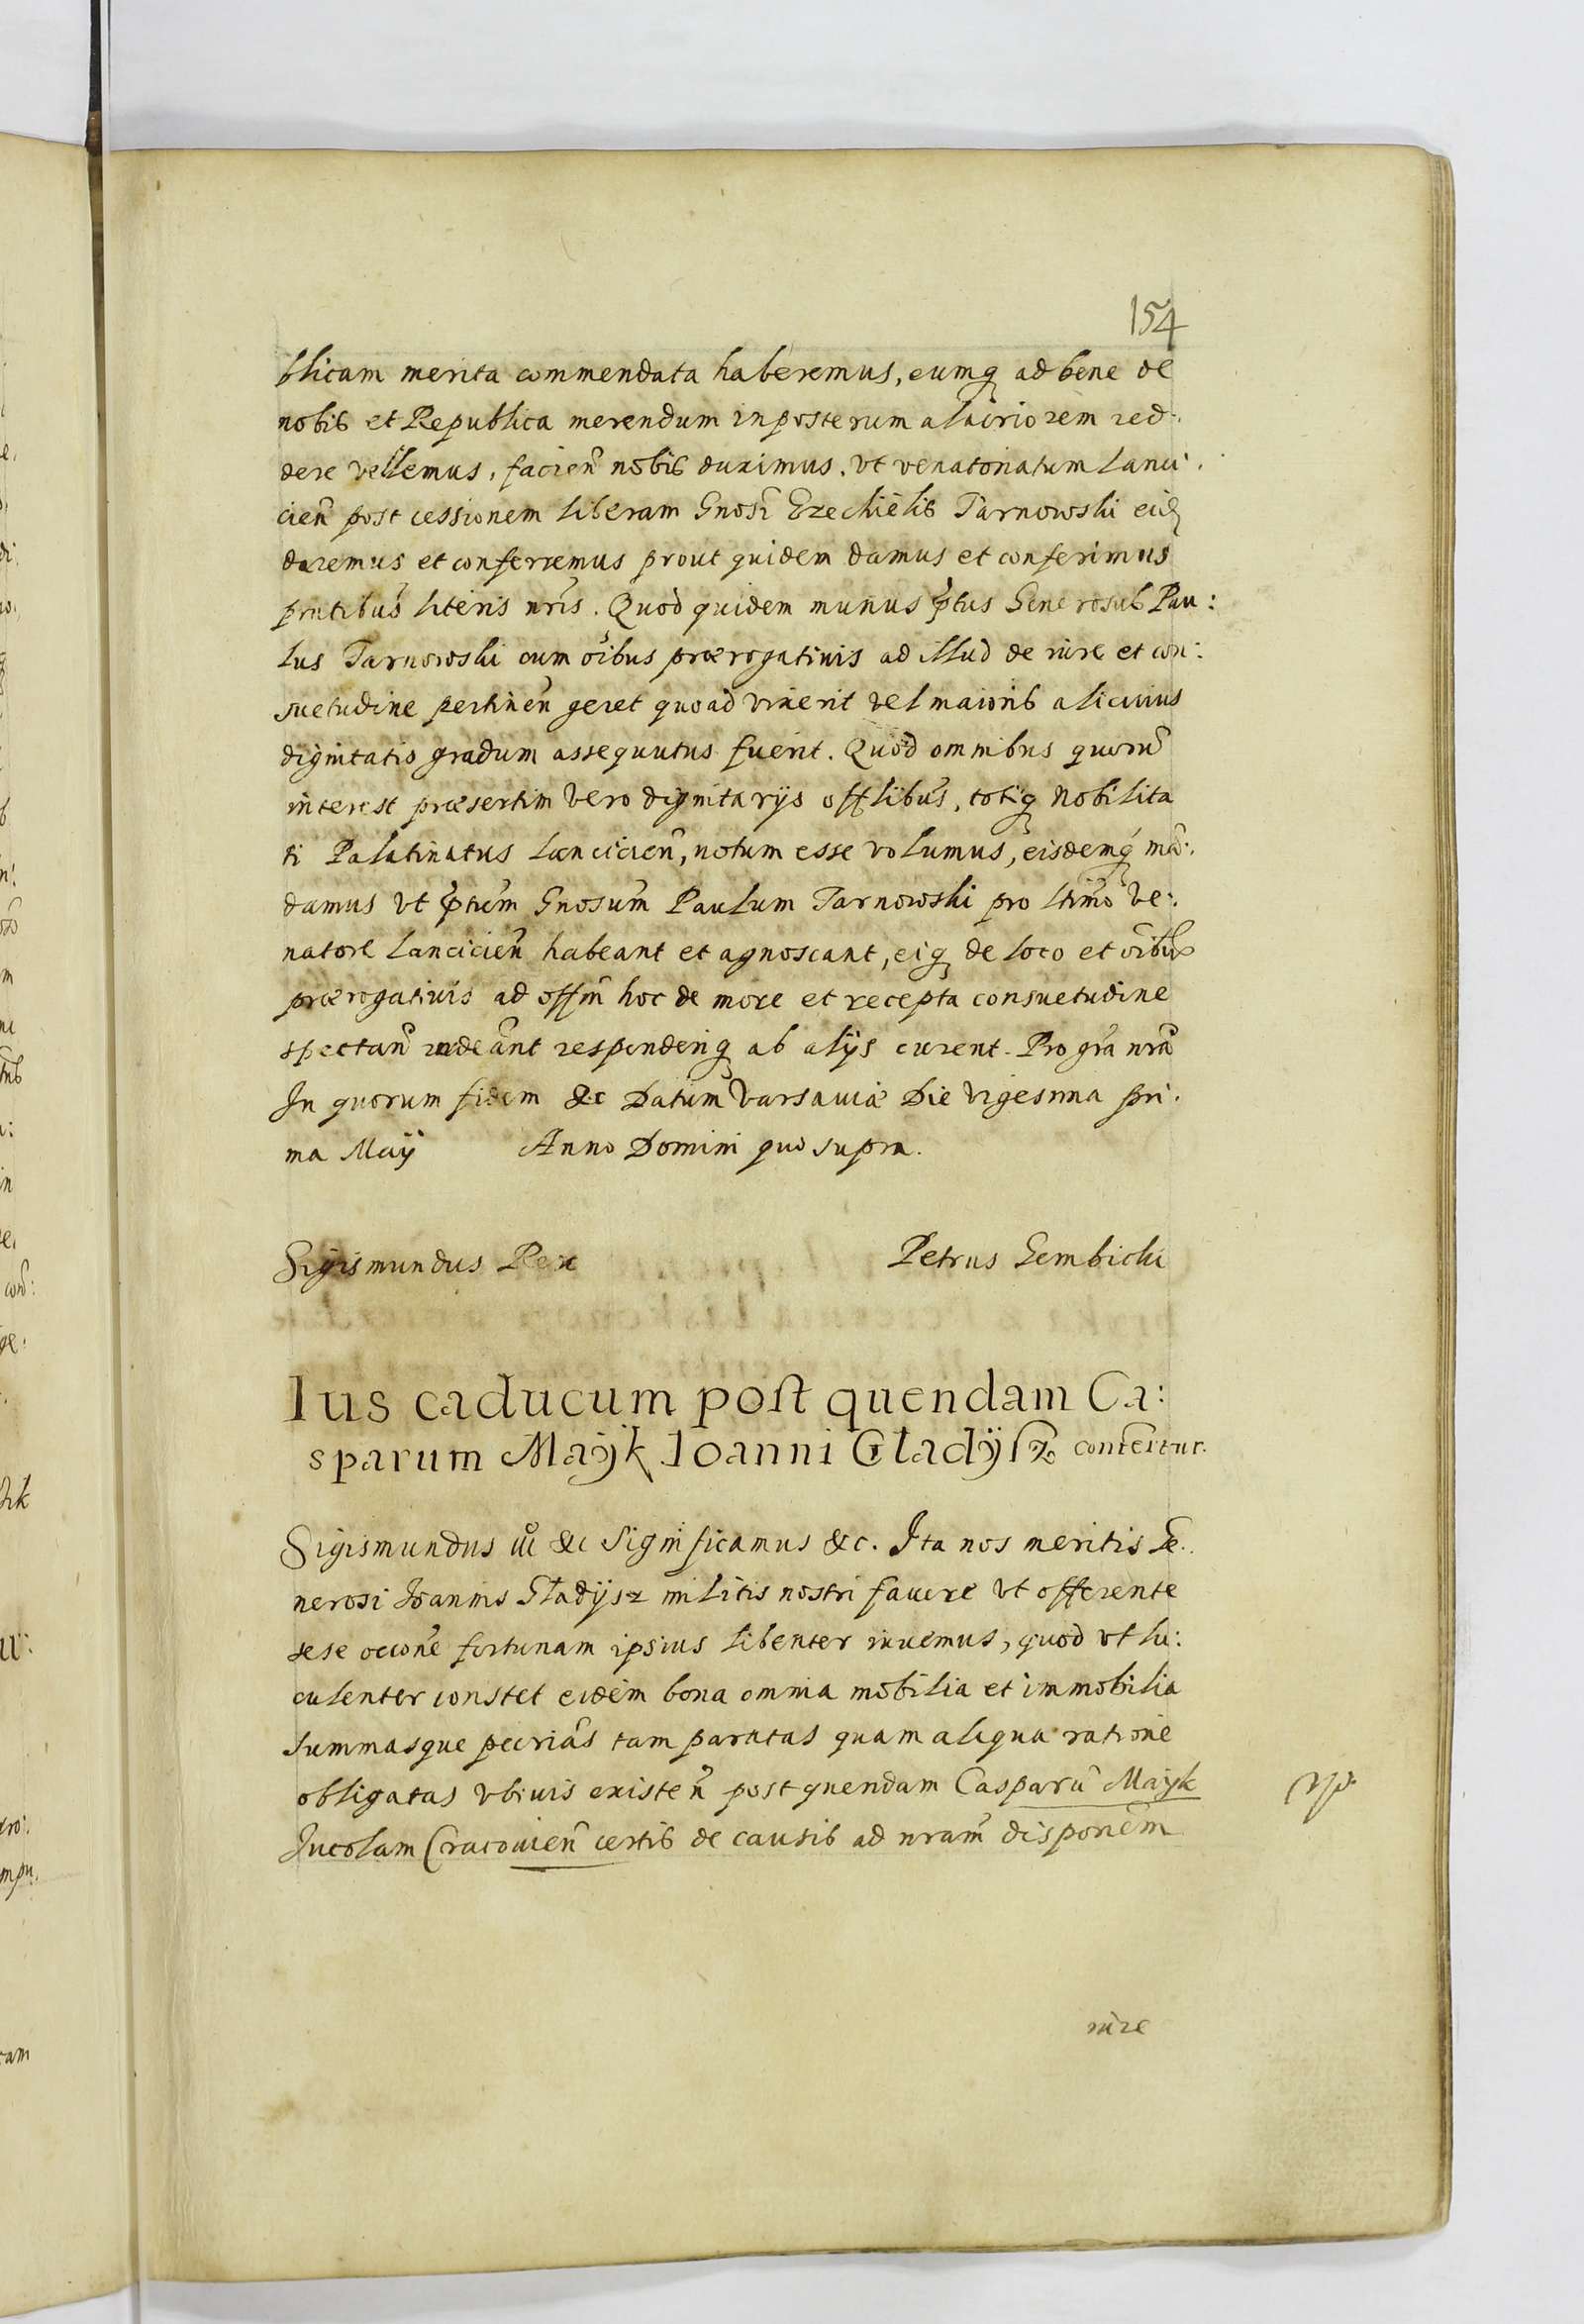 154
blicam merita commendata haberemus, eumq₃ ad bene de
nobis et Republica merendum inposterum alacriorem red:
dere vellemus, facien̄ nobis duximus, vt venatoriatum Lanci:
cien̄ post cessionem liberam Gnosi Ezechielis Tarnowski eid̄
daremus et conferremus prout quidem damus et conferimus
pr̄ntibus literis nr̄is. Quod quidem munus p̄tus Generosus Pau:
lus Tarnowski cum oībus prærogatiuis ad illud de iure et con:
suetudine pertinen̄ geret quoad vixerit vel maioris alicuius
dignitatis gradum assequutus fuerit. Quod omnibus quorū
interest præsertim vero dignitarijs offl̄ibus, totiq₃ Nobilita
ti Palatinatus Lancicien̄, notum esse volumus, eisdemq₃ mā:
damus vt p̄tum Gnosum Paulum Tarnowski pro ltimo Ve:
natore Lancicien̄ habeant et agnoscant, eiq₃ de loco et oībus
prærogatiuis ad offm̄ hoc de more et recepta consuetudine
spectan̄ rñdeant responderiq₃ ab alijs curent. Pro gr̄a nr̄a
In quorum fidem &c Datum Varsauiæ Die vigesima pri:
ma Maÿ Anno Domini quo supra.
Sigismundus Rex Petrus Gembicki
Ius caducum post quendam Ca:
sparum Maÿk Ioanni Gladÿsz confertur.
Sigismundus &c Significamus &c. Ita nos meritis Ge:
nerosi Ioannis Gladÿsz militis nostri fauere vt offerente
sese occōne fortunam ipsius libenter iuuemus, quod vt lu:
culenter constet eidem bona omnia mobilia et immobilia
summasque pecrias tam paratas quam aliqua ratione
obligatas vbiuis existen̄ post quendam Casparū Maÿk
Incolam Cracouien̄ certis de causis ad nram̄ disponem̄
iure